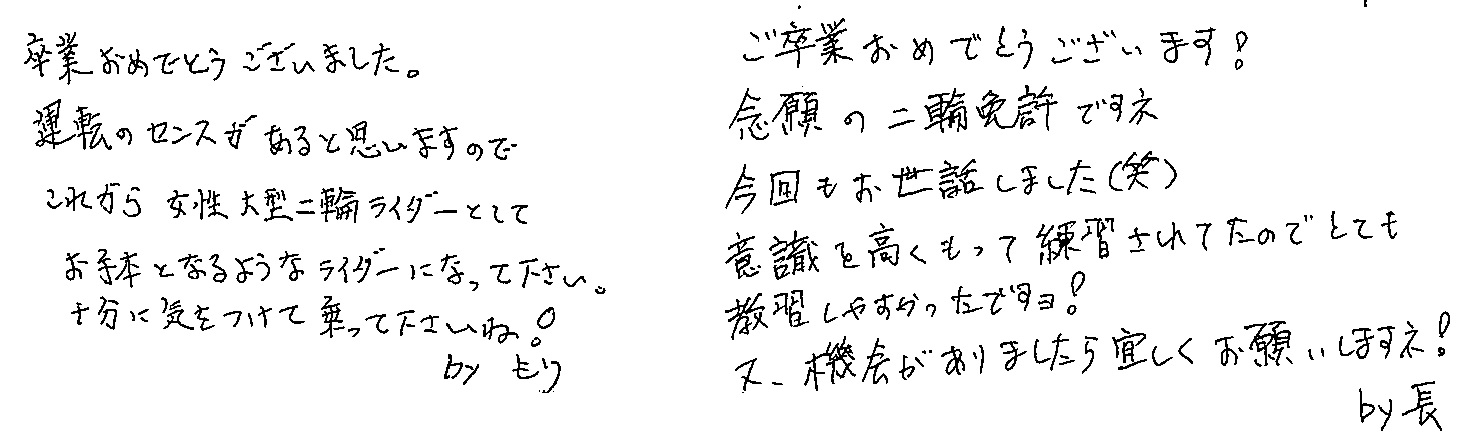 卒業おめでとうございました。
運転のセンスがあると思いますので
これから女性大型二輪ライダーとして
お手本となるようなライダーになって下さい。
十分に気をつけて乗って下さいね!
by もり
ご卒業おめでとうございます!
念願の二輪免許ですネ
今回もお世話しました(笑)
意識を高くもって練習されてたのでとても
教習しやすかったですヨ!
又、機会がありましたら宜しくお願いしますネ!
by 長